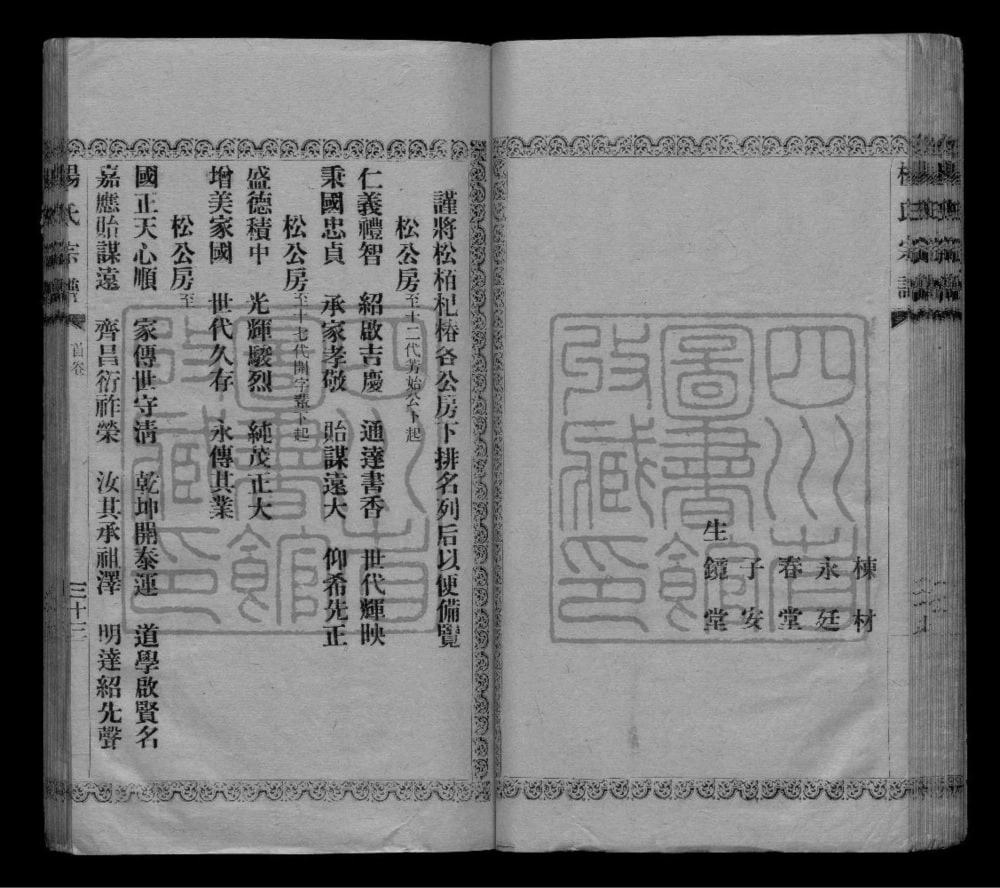 楊氏宗譜
棟材
永廷
春堂
子安
生鏡堂
謹將松栢杞椿各公房下排名列后以便備覽
松公房至十二代芳始公下起
仁義禮智 紹啟吉慶 通達書香 世代輝映
秉國忠貞 承家孝敬 貽謀遠大 仰希先正
松公房至十七代開字輩下起
盛德積中 光輝駿烈 純茂正大
增美家國 世代久存 永傳其業
松公房至
國正天心順 家傳世守清 乾坤開泰運 道學啟賢名
嘉應貽謀遠 齊昌衍祚榮 汝其承祖澤 明達紹先聲
楊氏宗譜 首卷 三十三
四川省
圖書館
收藏印